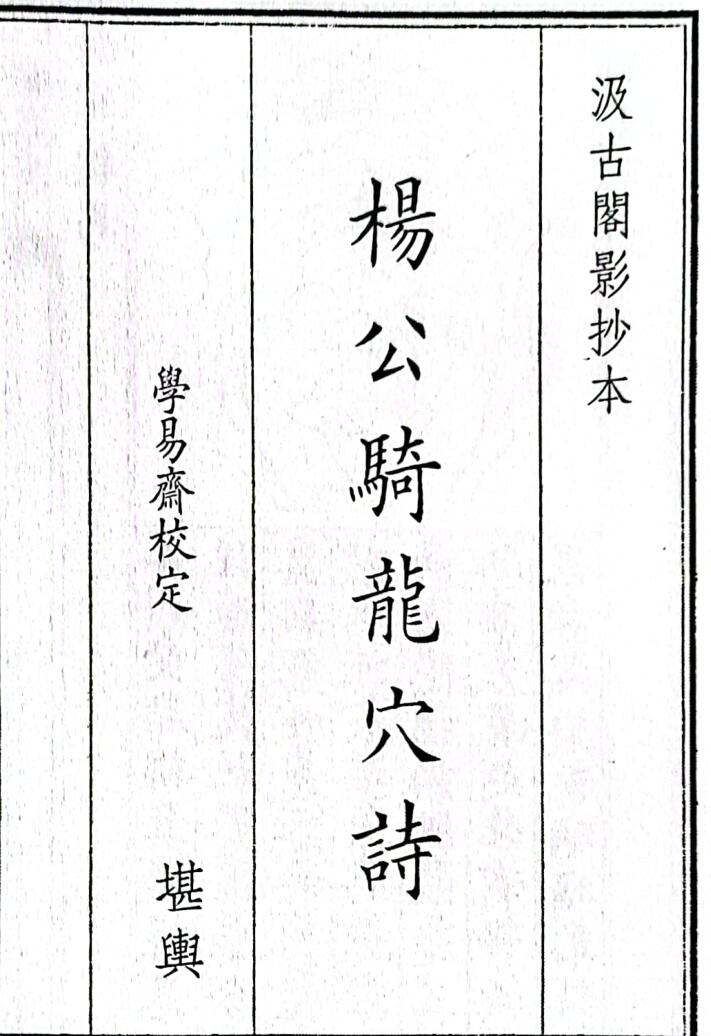 汲古閣影抄本
楊公騎龍穴詩
學易齋校定
堪輿